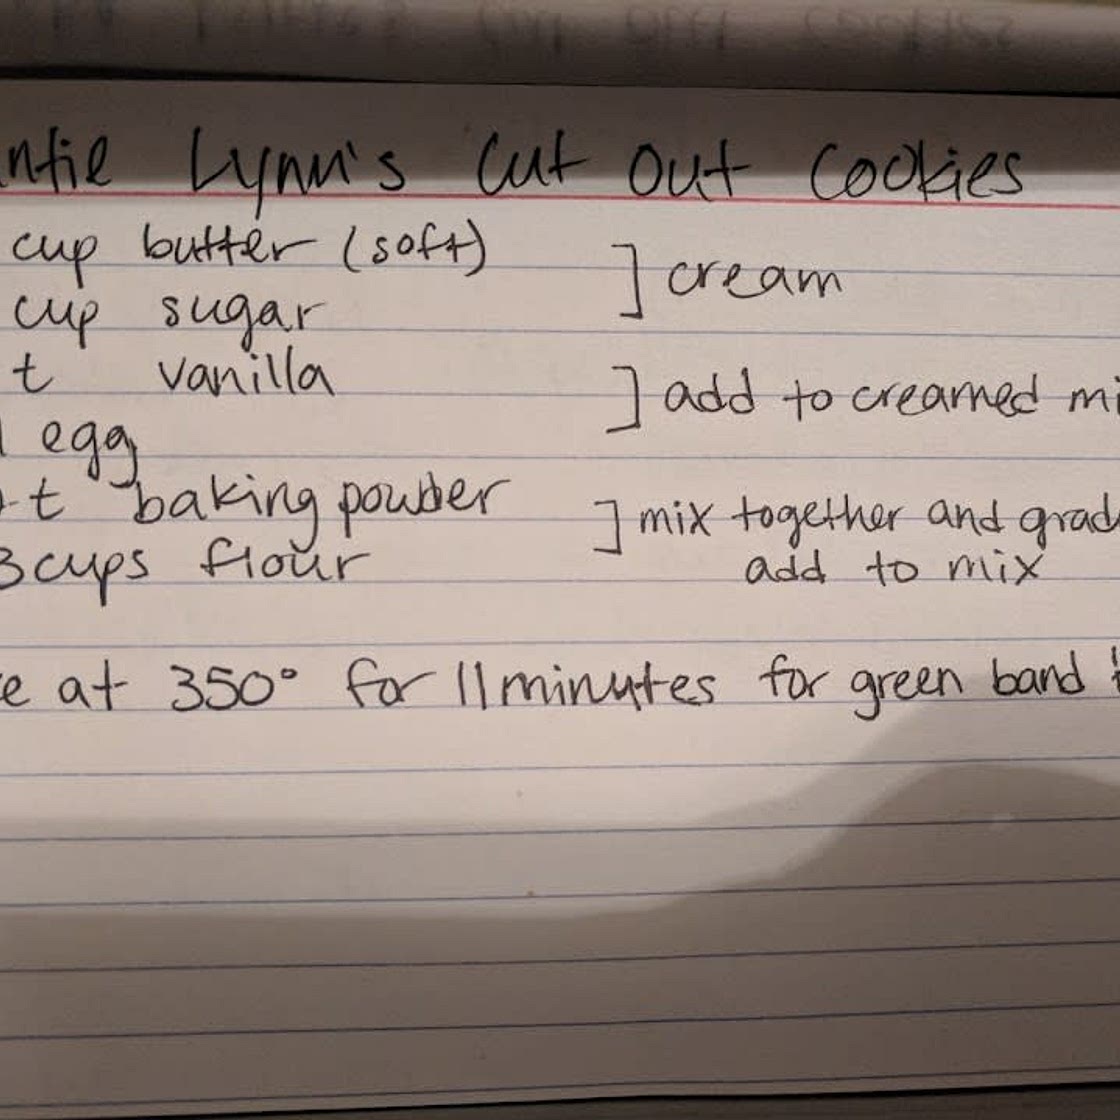 ntie Lynn's Cut Out Cookies
cup butter (soft) ] cream
cup sugar
t vanilla ] add to creamed mi
1 egg
t baking powder ] mix together and grad
3 cups flour add to mix
e at 350° for 11 minutes for green band